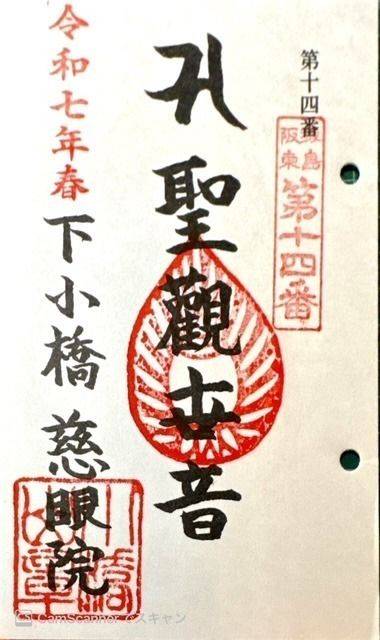 第十四番
島
阪東
第十四番
聖觀世音
令和七年春
下小橋 慈眼院
CamScanner でスキャン